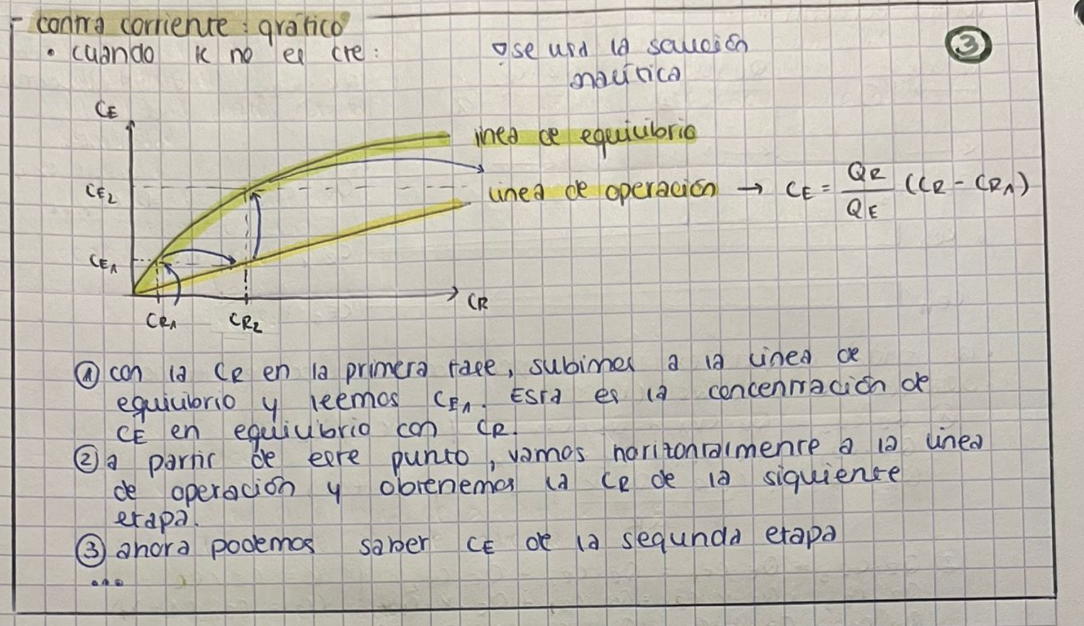 - contra corriente: gráfico
• cuando K no es cte:
se usa la solución
analítica
3
CE
línea de equilibrio
CE2
línea de operación → CE = QR/QE (CR - CR1)
CE1
CR
CR1 CR2
① con la CR en la primera fase, subimos a la línea de
equilibrio y leemos CE1. Esta es la concentración de
CE en equilibrio con CR.
② a partir de este punto, vamos horizontalmente a la línea
de operación y obtenemos la CR de la siguiente
etapa.
③ ahora podemos saber CE de la segunda etapa
...